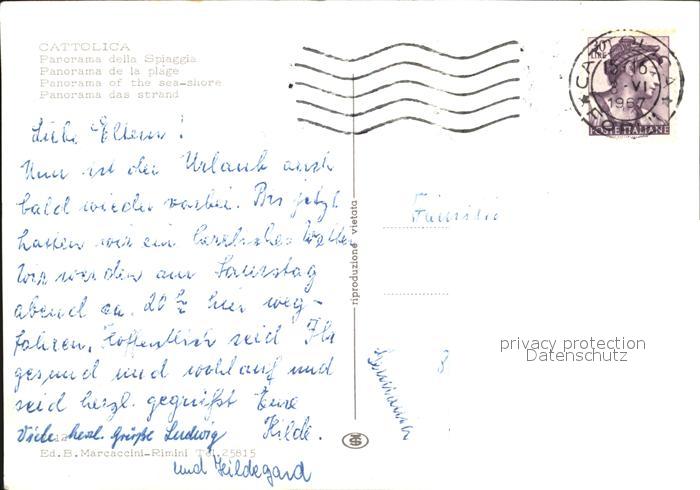 CATTOLICA
Panorama della Spiaggia
Panorama de la plage
Panorama of the sea-shore
Panorama das strand
30
LIRE
1967
FORLI
POSTE ITALIANE
Liebe Eltern!
Nun ist der Urlaub auch
bald wieder vorbei. Bis jetzt
hatten wir ein herrliches Wetter
Wir werden am Samstag
abend ca. 20 h hier weg-
fahren, hoffentlich seid Ihr
gesund und wohlauf und
seid herzl. gegrüßt Eure
Viele herzl. grüße Ludwig Hilde.
Ed.B. Marcaccini-Rimini Tel. 25815
und Hildegard
riproduzione vietata
Familie
8
privacy protection
Datenschutz